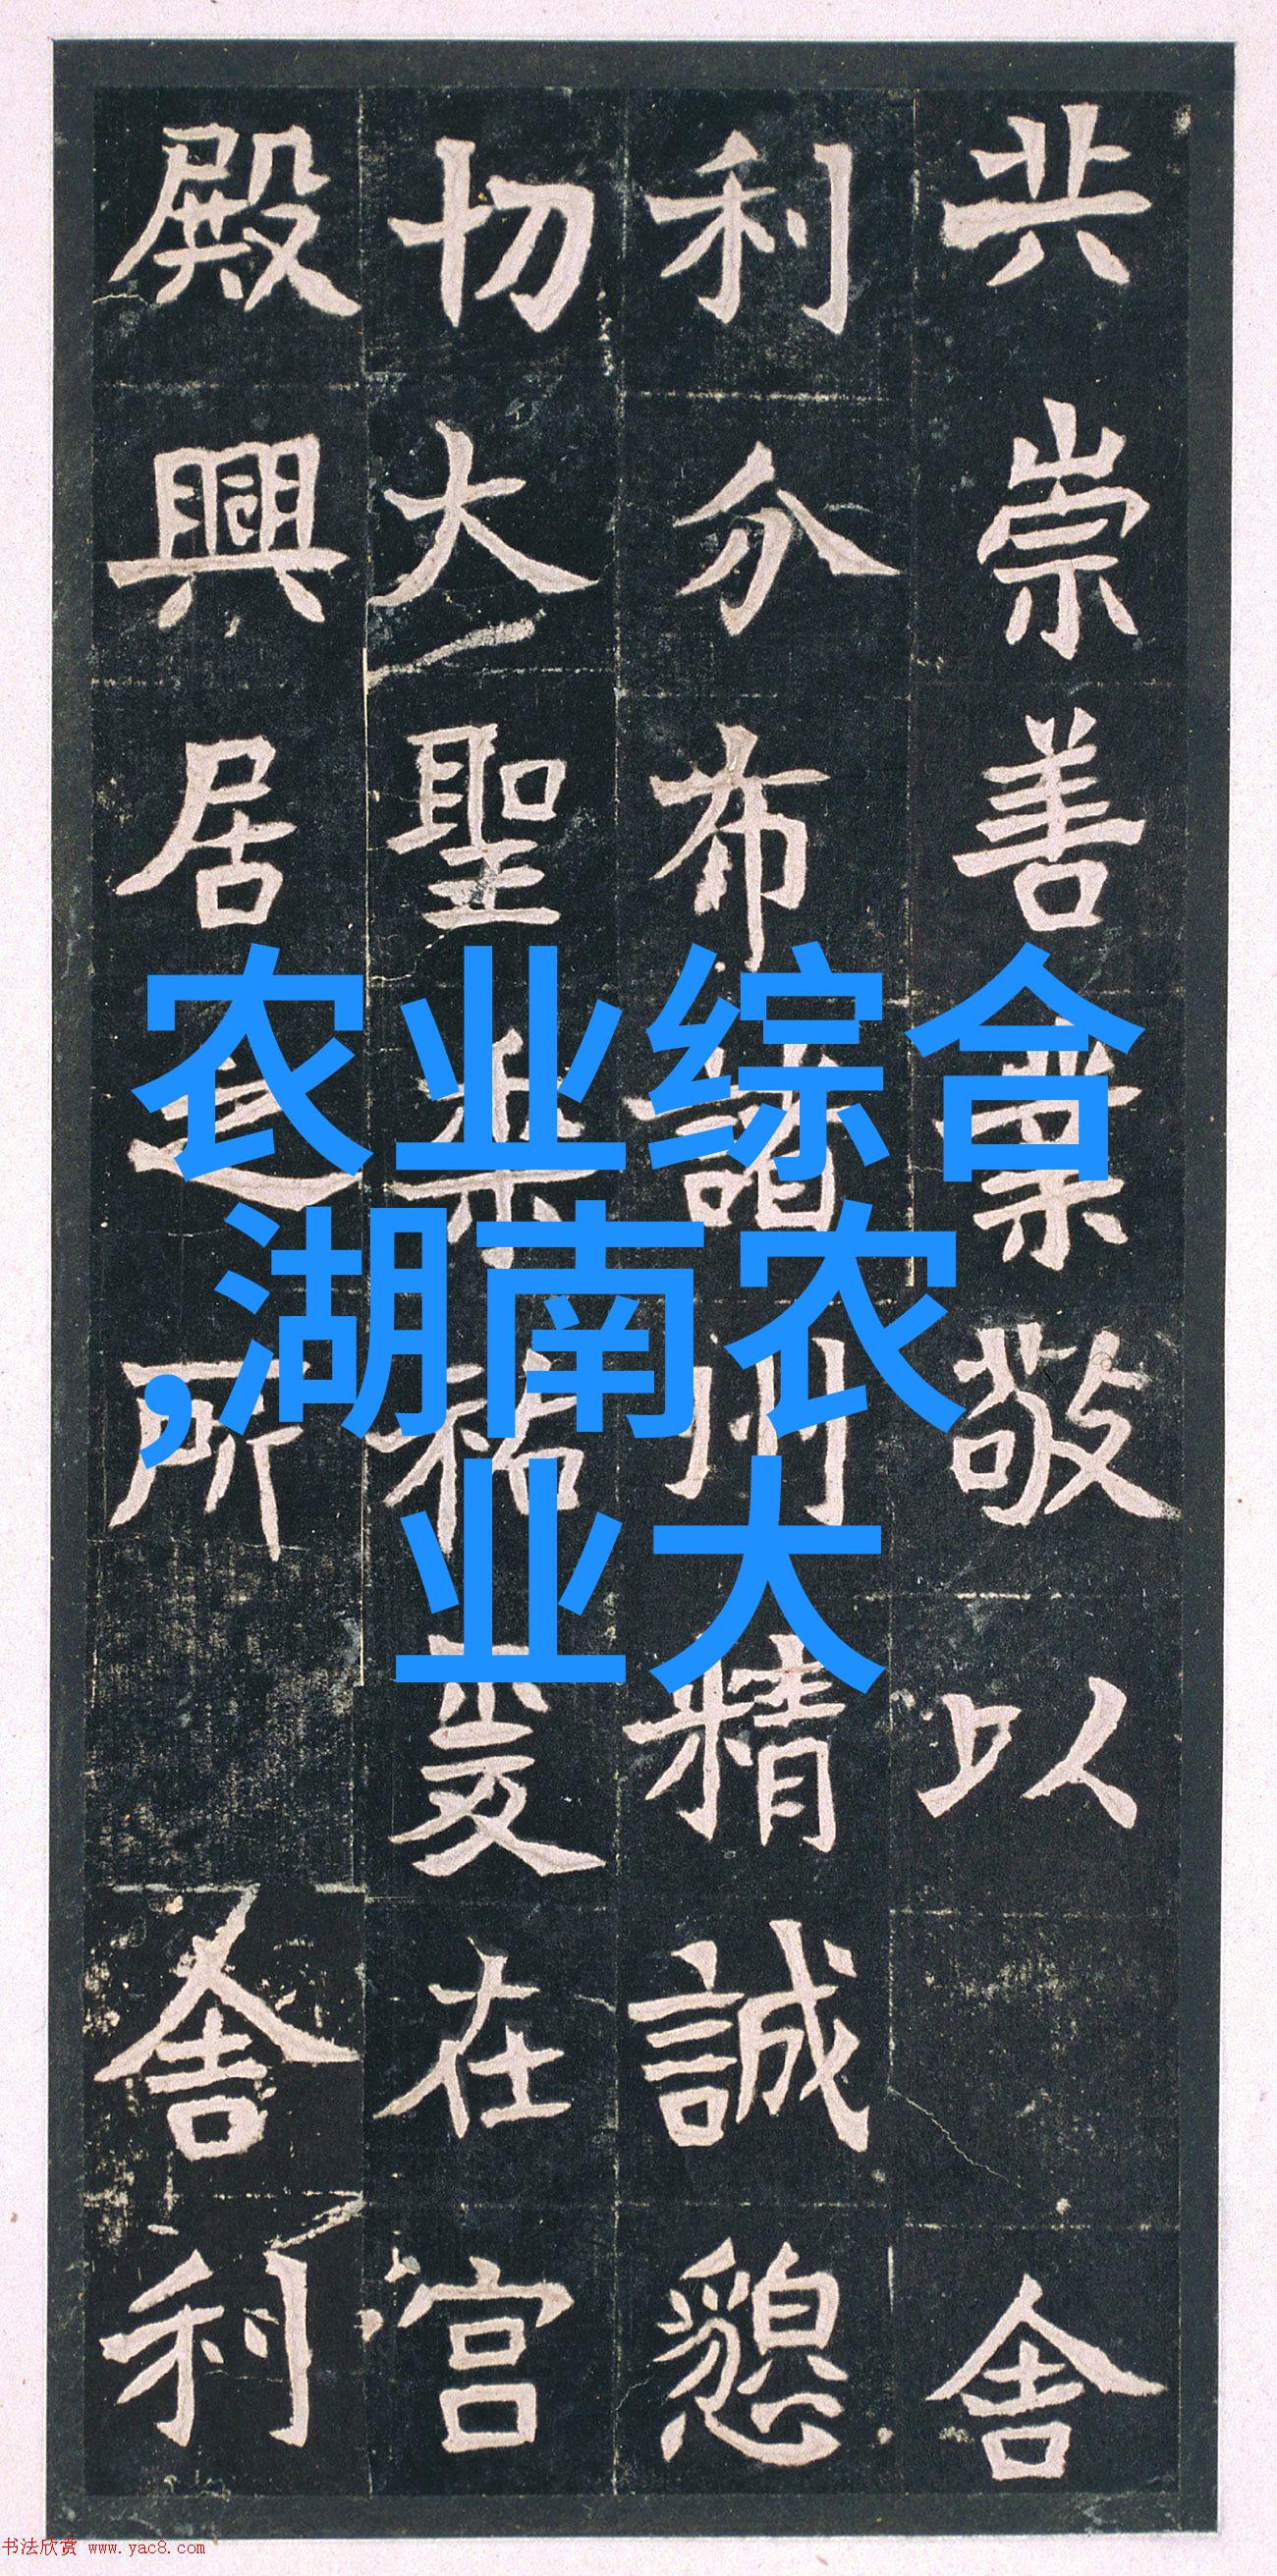 共崇善業敬以舍
利分布諸州精誠懇
切大聖祐爰在宮
殿興居之所舍利
农业综合
,湖南农
业大
书法欣赏 www.yac8.com